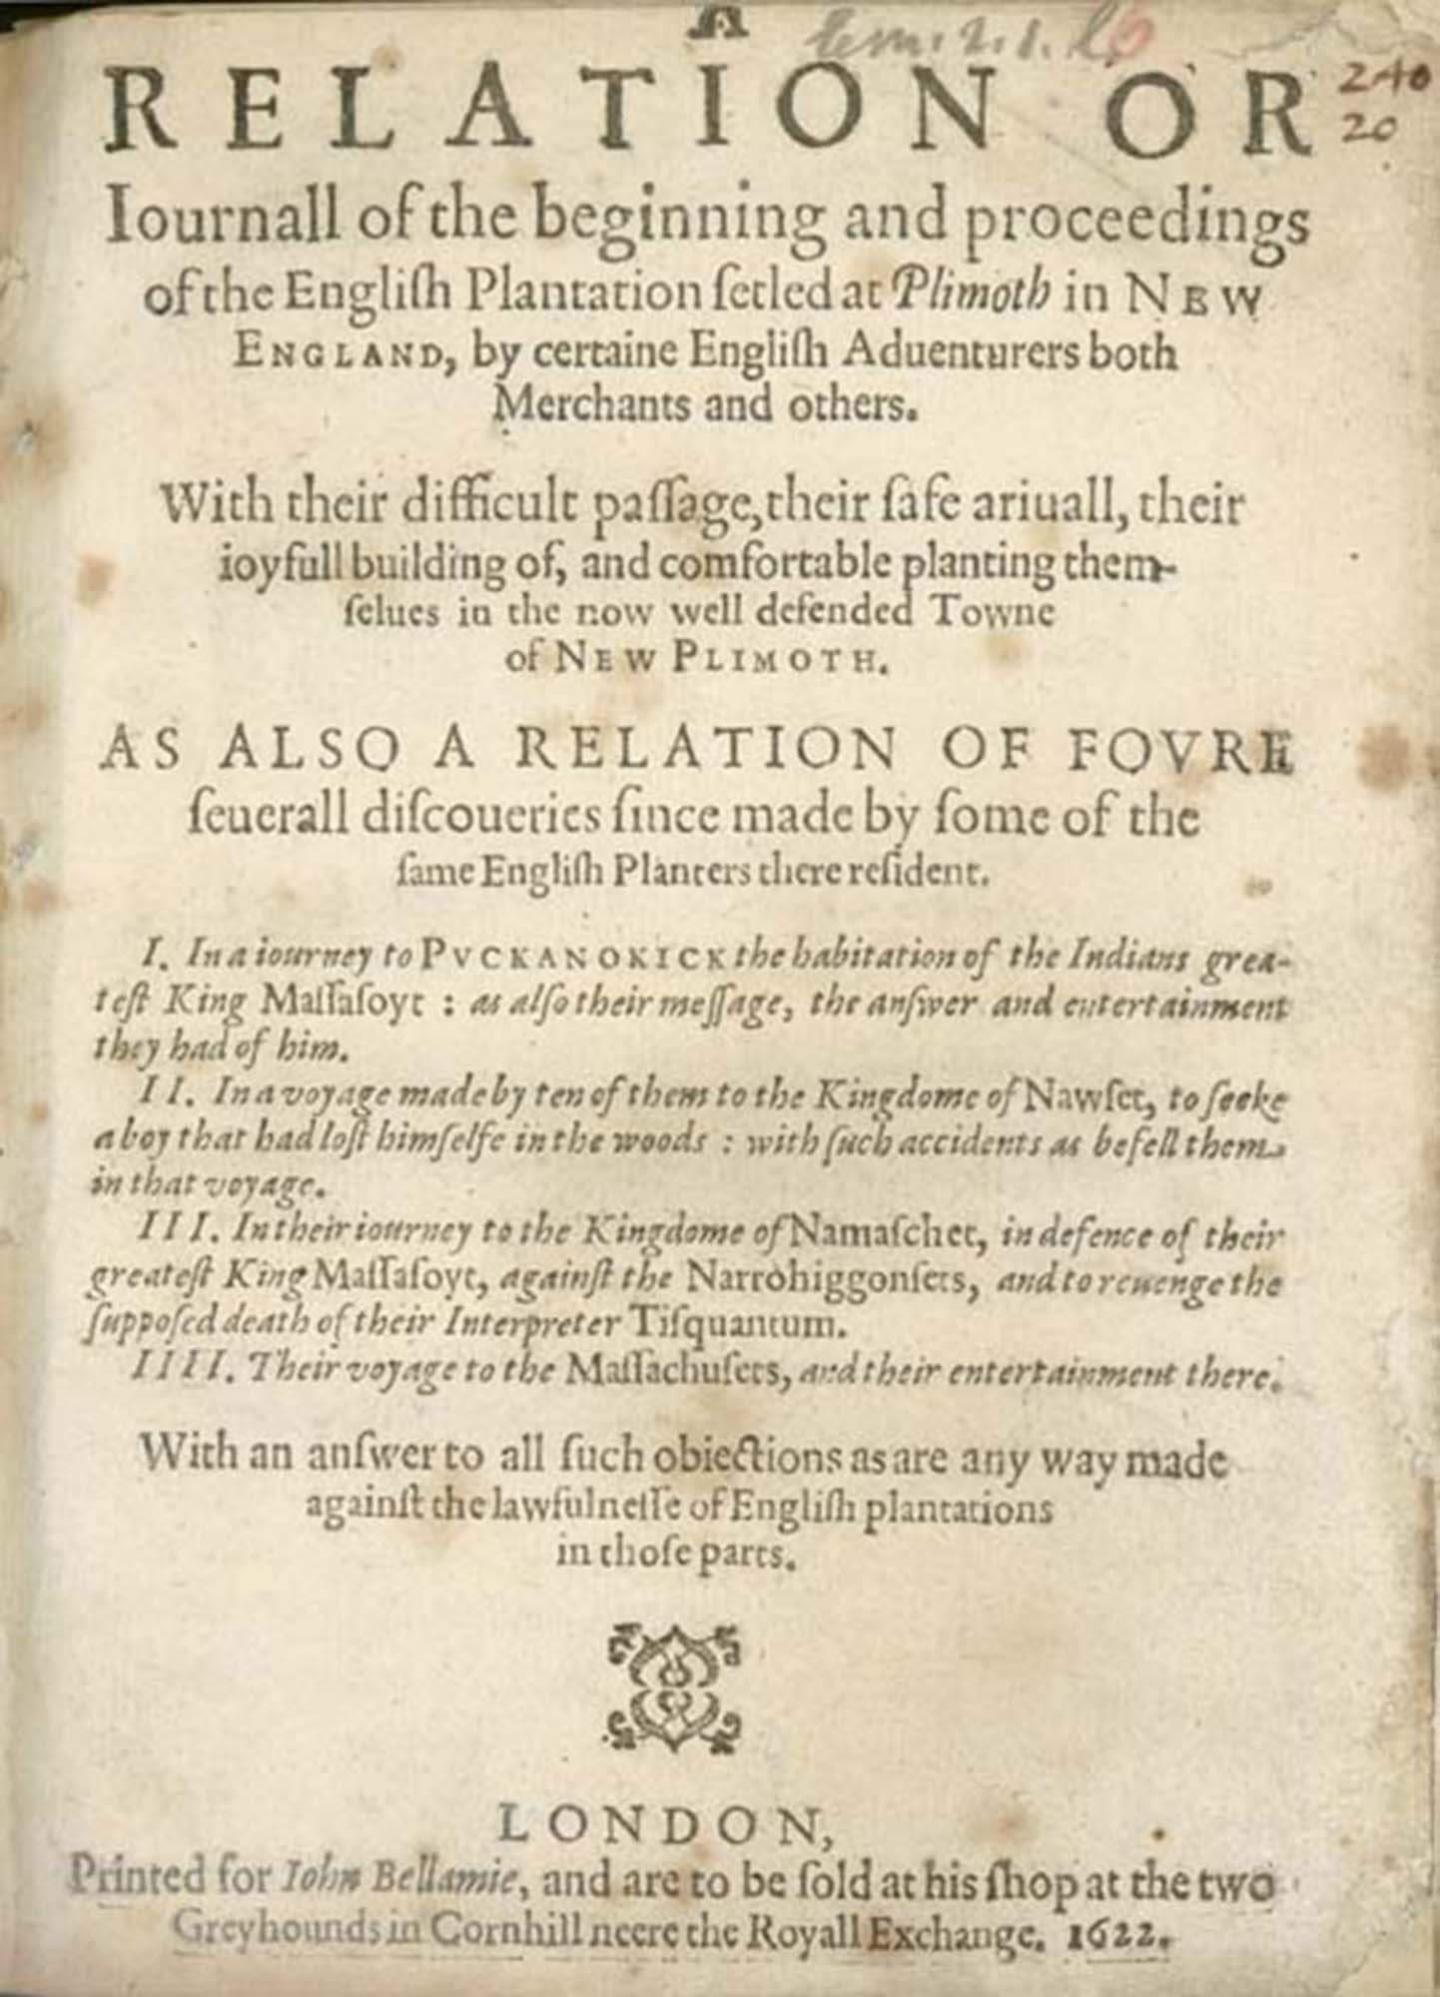 A
RELATION OR
Iournall of the beginning and proceedings
of the Engliſh Plantation ſetled at Plimoth in NEW
ENGLAND, by certaine Engliſh Aduenturers both
Merchants and others.
With their difficult paſſage, their ſafe ariuall, their
ioyfull building of, and comfortable planting them-
ſelues in the now well defended Towne
of NEW PLIMOTH.
AS ALSO A RELATION OF FOVRE
ſeuerall diſcoueries ſince made by ſome of the
ſame Engliſh Planters there reſident.
I. In a iourney to PVCKANOKICK the habitation of the Indians grea-
teſt King Maſſaſoyt : as alſo their meſſage, the anſwer and entertainment
they had of him.
II. In a voyage made by ten of them to the Kingdome of Nawſet, to ſeeke
a boy that had loſt himſelfe in the woods : with ſuch accidents as befell them
in that voyage.
III. In their iourney to the Kingdome of Namaſchet, in defence of their
greateſt King Maſſaſoyt, againſt the Narrohiggonſets, and to reuenge the
ſuppoſed death of their Interpreter Tiſquantum.
IIII. Their voyage to the Maſſachuſets, and their entertainment there.
With an anſwer to all ſuch obiections as are any way made
againſt the lawfulneſſe of Engliſh plantations
in thoſe parts.
LONDON,
Printed for Iohn Bellamie, and are to be ſold at his ſhop at the two
Greyhounds in Cornhill neere the Royall Exchange. 1622.
240
20